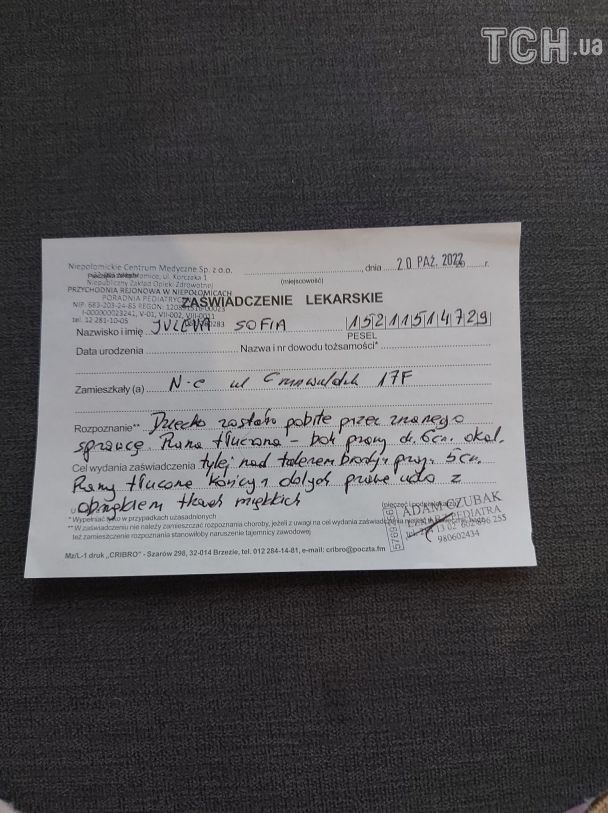 ТСН.ua
Niepołomickie Centrum Medyczne Sp. z o.o.
Niepołomice, ul. Korczaka 1
Niepubliczny Zakład Opiek. Zdrowotnej
PRZYCHODNIA REJONOWA W NIEPOŁOMICACH
PORADNIA PEDIATRYCZNA
NIP: 683-203-24-85 REGON:
I-000000023241, V-01, VII-002, VIII-0011
tel. 12 281-10-05
(miejscowość)
dnia 20 PAŹ. 2022 r.
ZAŚWIADCZENIE LEKARSKIE
Nazwisko i imię SOFIA 15211514729
PESEL
Data urodzenia Nazwa i nr dowodu tożsamości*
Zamieszkały (a) N-ce ul 17F
Rozpoznanie** Dziecko zostało pobite przez znanego
sprawcę. Rana tłuczona – bok prawy dł. 6cm. okol.
Cel wydania zaświadczenia tylej nad talerzem 5cm.
Rany tłuczone kończyn dolnych prawe udo z
obrzękiem tkanek miękkich
(pieczęć i podpis lekarza)
* Wypełniać tylko w przypadkach uzasadnionych
** W zaświadczeniu nie należy zamieszczać rozpoznania choroby, jeżeli z uwagi na cel wydania zaświadczenia
też zamieszczenie rozpoznania stanowiłoby naruszenie tajemnicy zawodowej
ADAM CZUBAK
LEKARZ PEDIATRA
980602434
Mz/L-1 druk „CRIBRO” - Szarów 298, 32-014 Brzezie, tel. 012 284-14-81, e-mail: cribro@poczta.fm